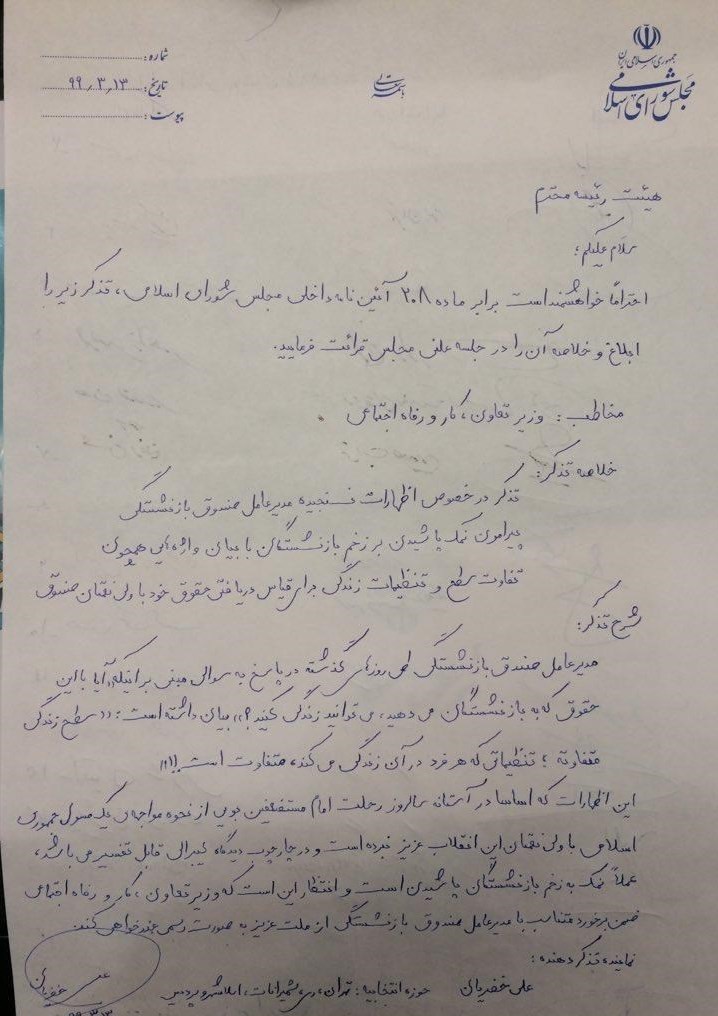 جمهوری اسلامی ایران
مجلس شورای اسلامی
باسمه تعالی
شماره :
تاریخ : ۹۹٫۳٫۱۳
پیوست :
هیئت رئیسه محترم
سلام علیکم؛
احتراماً خواهشمند است برابر ماده ۲۰۸ آئین نامه داخلی مجلس شورای اسلامی، تذکر زیر را
ابلاغ و خلاصه آن را در جلسه علنی مجلس قرائت فرمایید.
مخاطب : وزیر تعاون، کار و رفاه اجتماعی
خلاصه تذکر:
تذکر در خصوص اظهارات نسنجیده مدیرعامل صندوق بازنشستگی
پیرامون نمک پاشیدن بر زخم بازنشستگان با بیان واژه‌هایی همچون
تفاوت سطح و تنظیمات زندگی برای قیاس دریافتی حقوق خود با ولی نعمتان صندوق
شرح تذکر:
مدیرعامل صندوق بازنشستگی طی روزهای گذشته در پاسخ به سوالی مبنی بر اینکه «آیا با این
حقوق که به بازنشستگان می دهید، می توانید زندگی کنید؟» بیان داشته است: «سطح زندگی
متفاوته؛ تنظیماتی که هر فرد در آن زندگی می کند، متفاوت است!!»
این اظهارات که اساسا در آستانه سالروز رحلت امام مستضعفین بویی از نحوه مواجهه‌ی یک مسئول جمهوری
اسلامی با ولی نعمتان این انقلاب عزیز نبرده است و در چارچوب دیدگاه لیبرالی قابل تفسیر می باشد،
عملاً نمک به زخم بازنشستگان پاشیدن است و انتظار این است که وزیر تعاون، کار و رفاه اجتماعی
ضمن برخورد متناسب با مدیرعامل صندوق بازنشستگی از ملت عزیز به صورت رسمی عذرخواهی کنند.
نماینده تذکر دهنده:
علی خضریان حوزه انتخابیه: تهران، ری، شمیرانات، اسلامشهر و پردیس
علی خضریان
۹۹٫۳٫۱۳